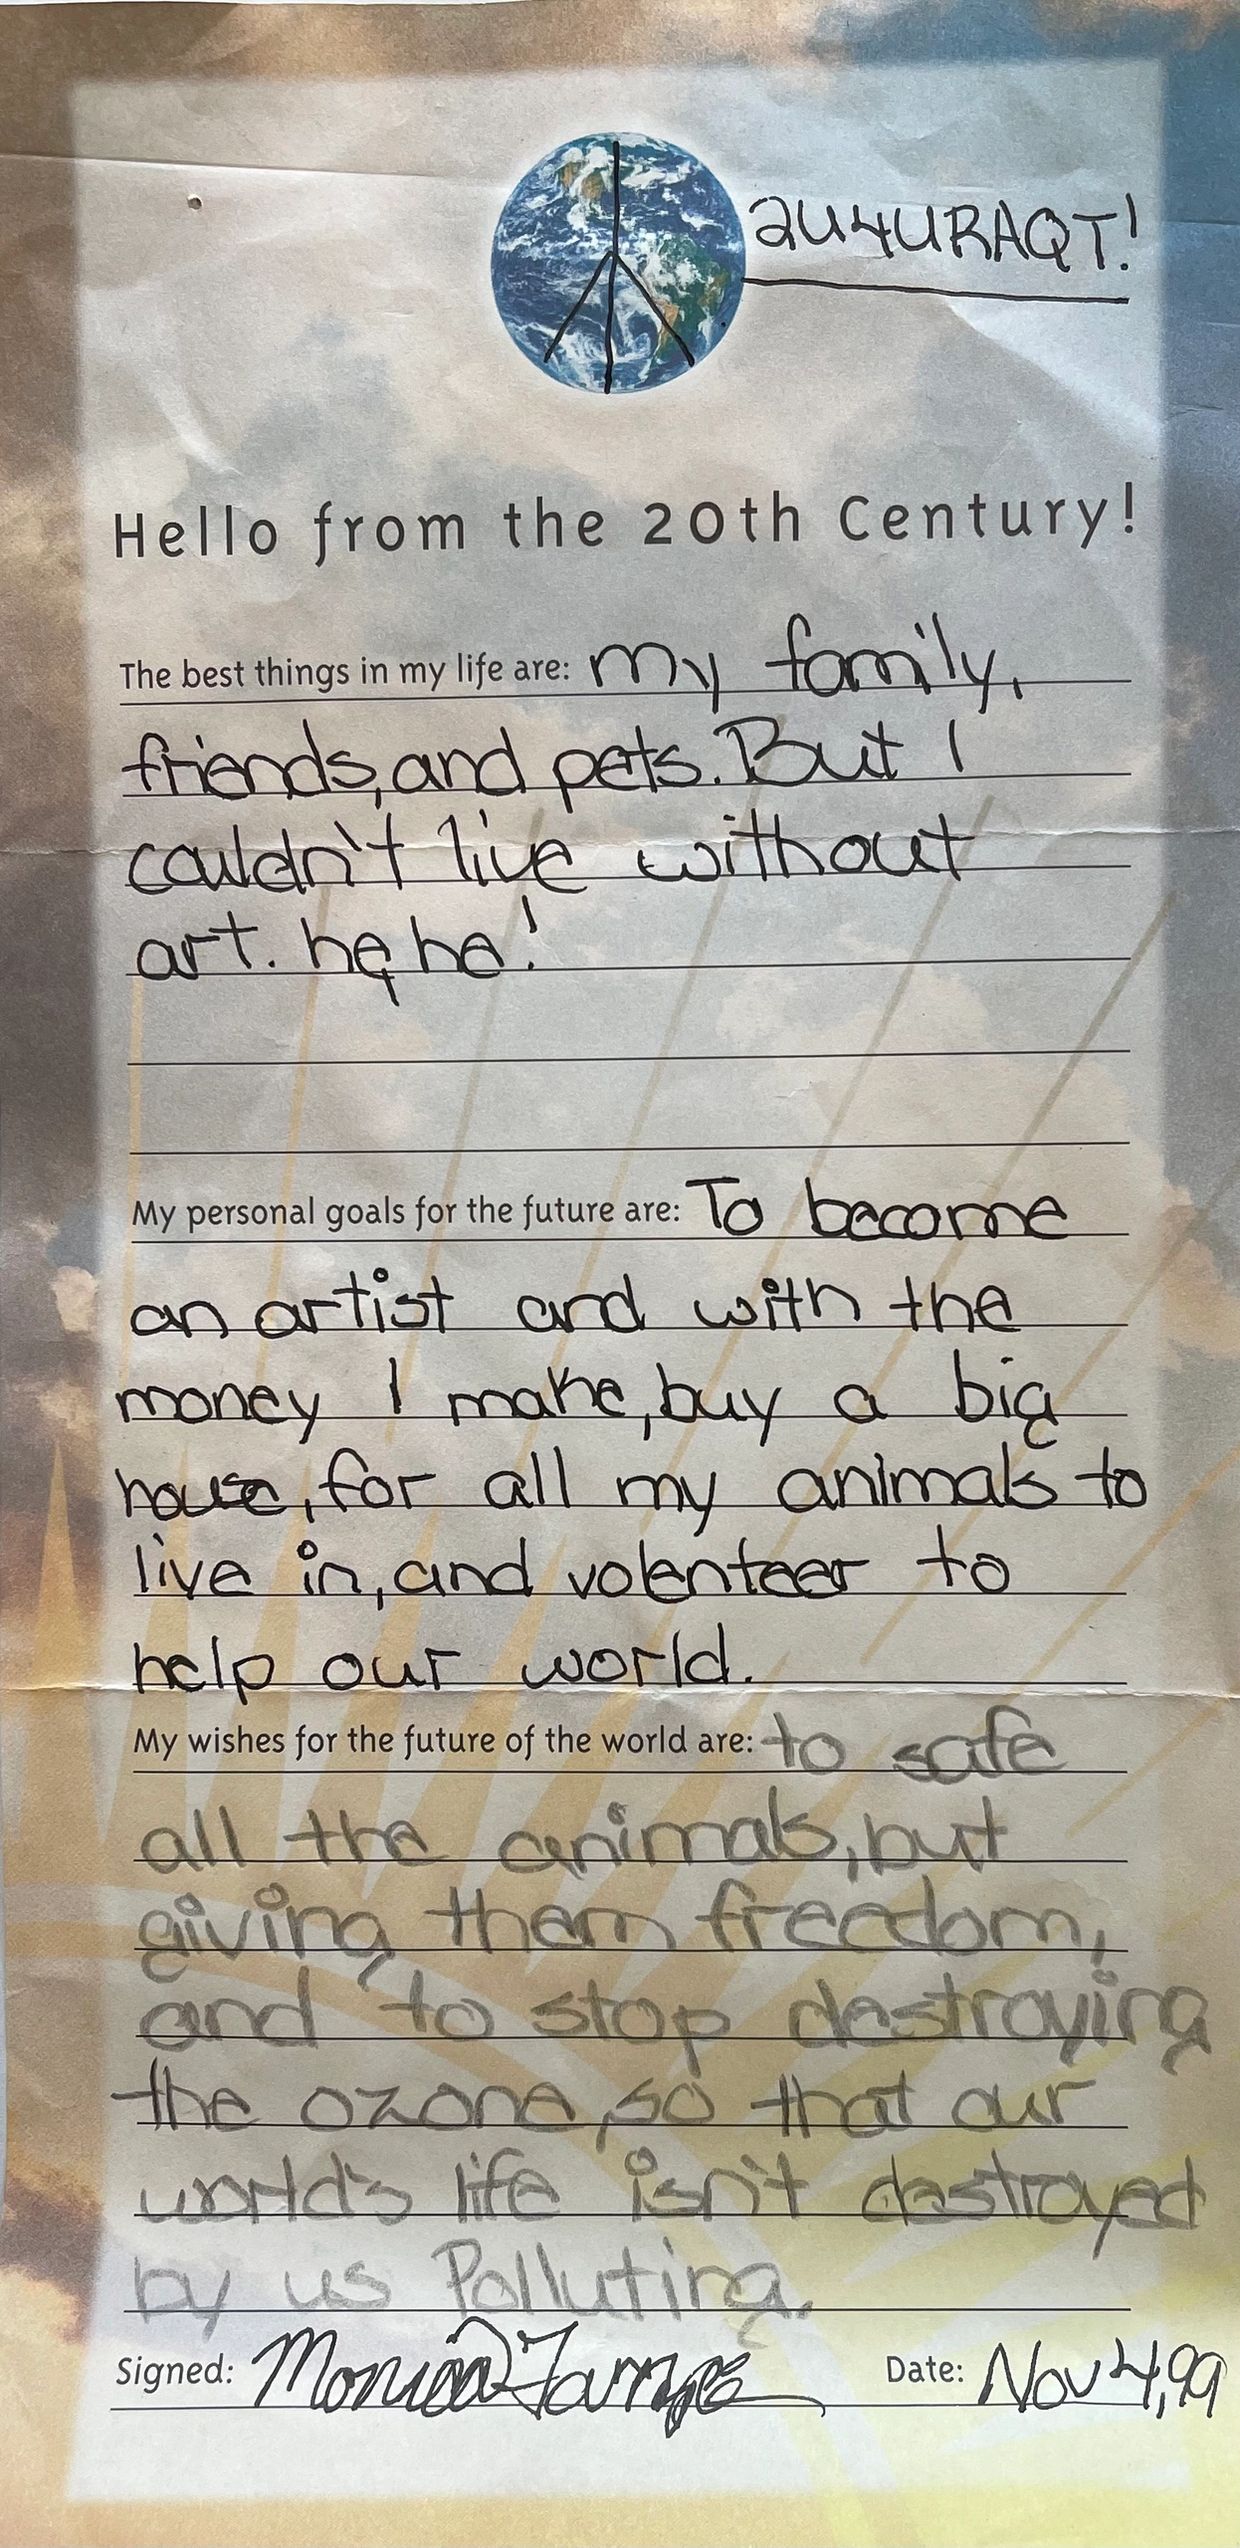 2U4URAQT!
Hello from the 20th Century!
The best things in my life are: my family,
friends, and pets. But I
couldn't live without
art. hehe!
My personal goals for the future are: To become
an artist and with the
money I make, buy a big
house, for all my animals to
live in, and volenteer to
help our world.
My wishes for the future of the world are: to safe
all the animals, but
giving them freedom,
and to stop destroying
the ozone, so that our
world's life isn't destroyed
by us Polluting.
Signed: Monica Date: Nov 4, 99